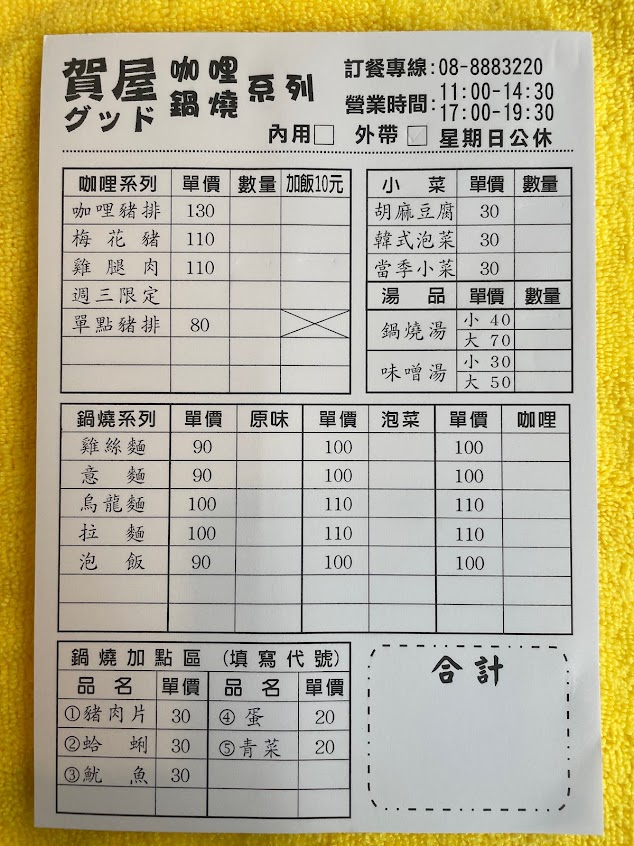 賀屋 咖哩 鍋燒 系列
グッド
訂餐專線:08-8883220
營業時間:11:00-14:30
17:00-19:30
內用□ 外帶□ 星期日公休
咖哩系列 單價 數量 加飯10元
咖哩豬排 130
梅花豬 110
雞腿肉 110
週三限定
單點豬排 80
小菜 單價 數量
胡麻豆腐 30
韓式泡菜 30
當季小菜 30
湯品 單價 數量
鍋燒湯 小 40
大 70
味噌湯 小 30
大 50
鍋燒系列 單價 原味 單價 泡菜 單價 咖哩
雞絲麵 90 100 100
意麵 90 100 100
烏龍麵 100 110 110
拉麵 100 110 110
泡飯 90 100 100
鍋燒加點區 (填寫代號)
品名 單價 品名 單價
①豬肉片 30 ④蛋 20
②蛤蜊 30 ⑤青菜 20
③魷魚 30
合計